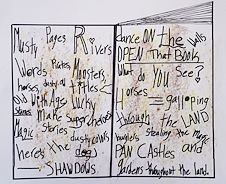 Musty Pages Rivers
Words Pirates Monsters
horses, dusty old titles
Old With Age Lucky
Stones Make Superheroes
Magic Stories dusty covers
here's the dog
SHADOWS.
dance ON the walls
OPEN That Book
What do YOU See?
Horses galloping
through the LAND
burglers Stealing the Magic
PAN CASTLES and
gardens throughout the land.